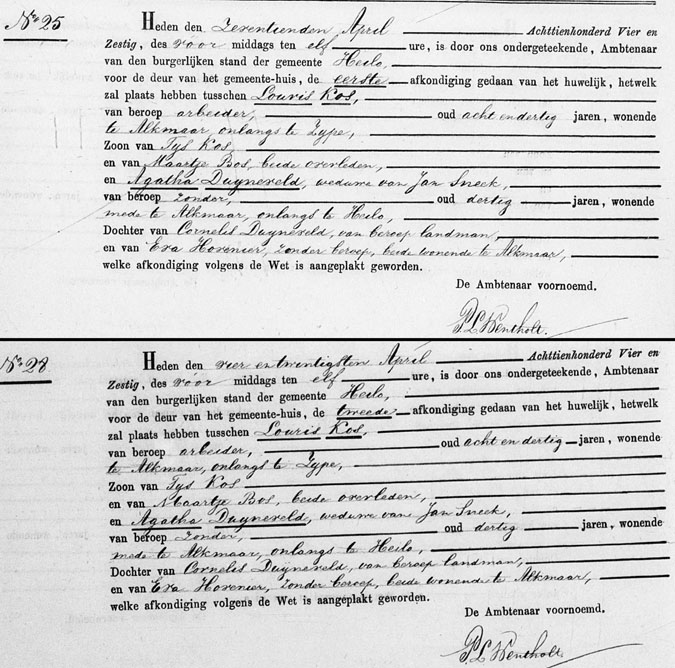 No. 25
Heden den zeventienden April Achttienhonderd Vier en
Zestig, des vóór middags ten elf ure, is door ons ondergeteekende, Ambtenaar
van den burgerlijken stand der gemeente Heilo,
voor de deur van het gemeente-huis, de eerste afkondiging gedaan van het huwelijk, hetwelk
zal plaats hebben tusschen Louris Kos,
van beroep arbeider, oud acht en dertig jaren, wonende
te Alkmaar, onlangs te Zype,
Zoon van Tys Kos,
en van Maartje Bos, beide overleden,
en Agatha Duyneveld, weduwe van Jan Sneek,
van beroep zonder, oud dertig jaren, wonende
mede te Alkmaar, onlangs te Heilo,
Dochter van Cornelis Duyneveld, van beroep landman,
en van Eva Hovenier, zonder beroep, beide wonende te Alkmaar,
welke afkondiging volgens de Wet is aangeplakt geworden.
De Ambtenaar voornoemd.
P.L. Wentholt.
No. 28
Heden den vier en twentigsten April Achttienhonderd Vier en
Zestig, des vóór middags ten elf ure, is door ons ondergeteekende, Ambtenaar
van den burgerlijken stand der gemeente Heilo,
voor de deur van het gemeente-huis, de tweede afkondiging gedaan van het huwelijk, hetwelk
zal plaats hebben tusschen Louris Kos,
van beroep arbeider, oud acht en dertig jaren, wonende
te Alkmaar, onlangs te Zype,
Zoon van Tys Kos
en van Maartje Bos, beide overleden,
en Agatha Duyneveld, weduwe van Jan Sneek,
van beroep zonder, oud dertig jaren, wonende
mede te Alkmaar, onlangs te Heilo,
Dochter van Cornelis Duyneveld, van beroep landman,
en van Eva Hovenier, zonder beroep, beide wonende te Alkmaar,
welke afkondiging volgens de Wet is aangeplakt geworden.
De Ambtenaar voornoemd.
P.L. Wentholt.